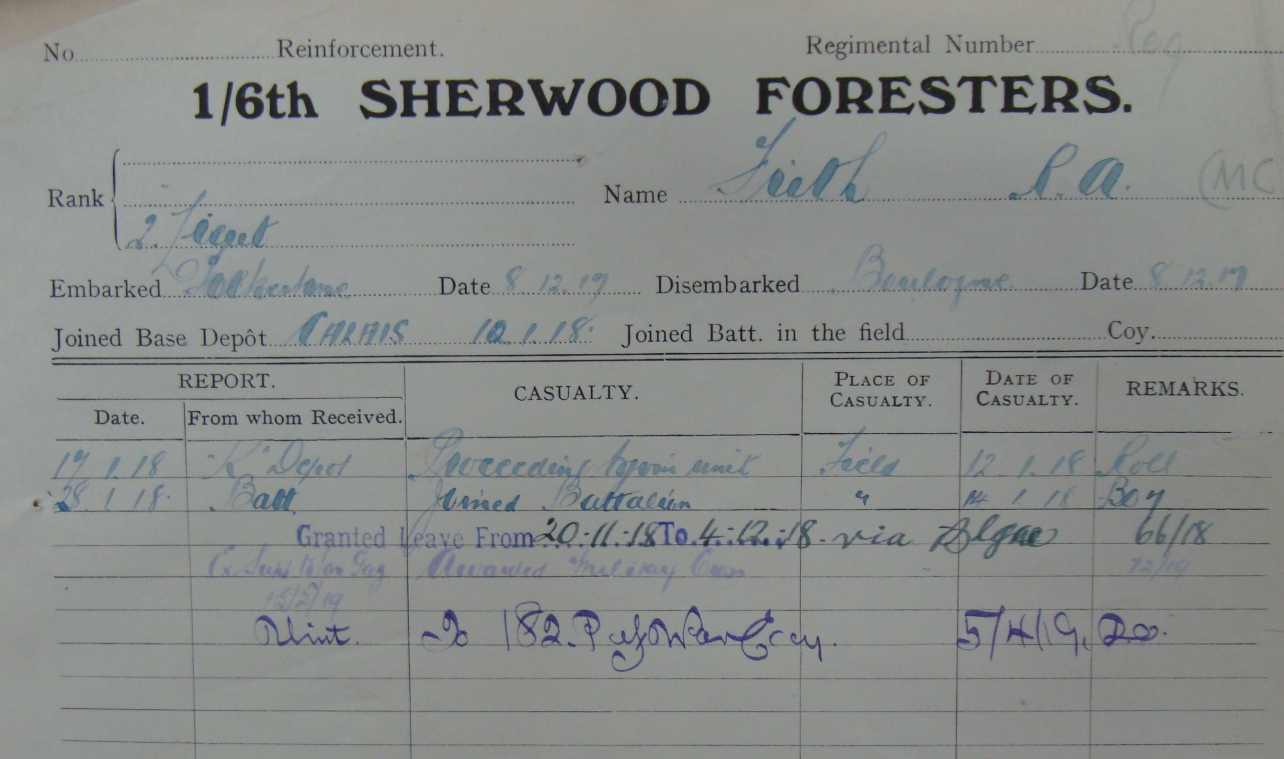 No. Reinforcement. Regimental Number
1/6th SHERWOOD FORESTERS.
Rank 2. Lieut Name Firth R. A. (MC
Embarked Folkestone Date 8.12.17 Disembarked Boulogne Date 8.12.17
Joined Base Depôt CALAIS 10.1.18. Joined Batt. in the field Coy.
REPORT. CASUALTY. PLACE OF CASUALTY. DATE OF CASUALTY. REMARKS.
Date. From whom Received.
17.1.18 "K" Depot Proceeding to join unit Field 12.1.18 Roll
28.1.18. Batt Joined Battalion " 14.1.18
Granted Leave From 20.11.18 To 4.12.18. via 66/18
Awarded Military Cross 72/19
15/2/19
Unit. To 182. P of War Coy. 5/4/19.